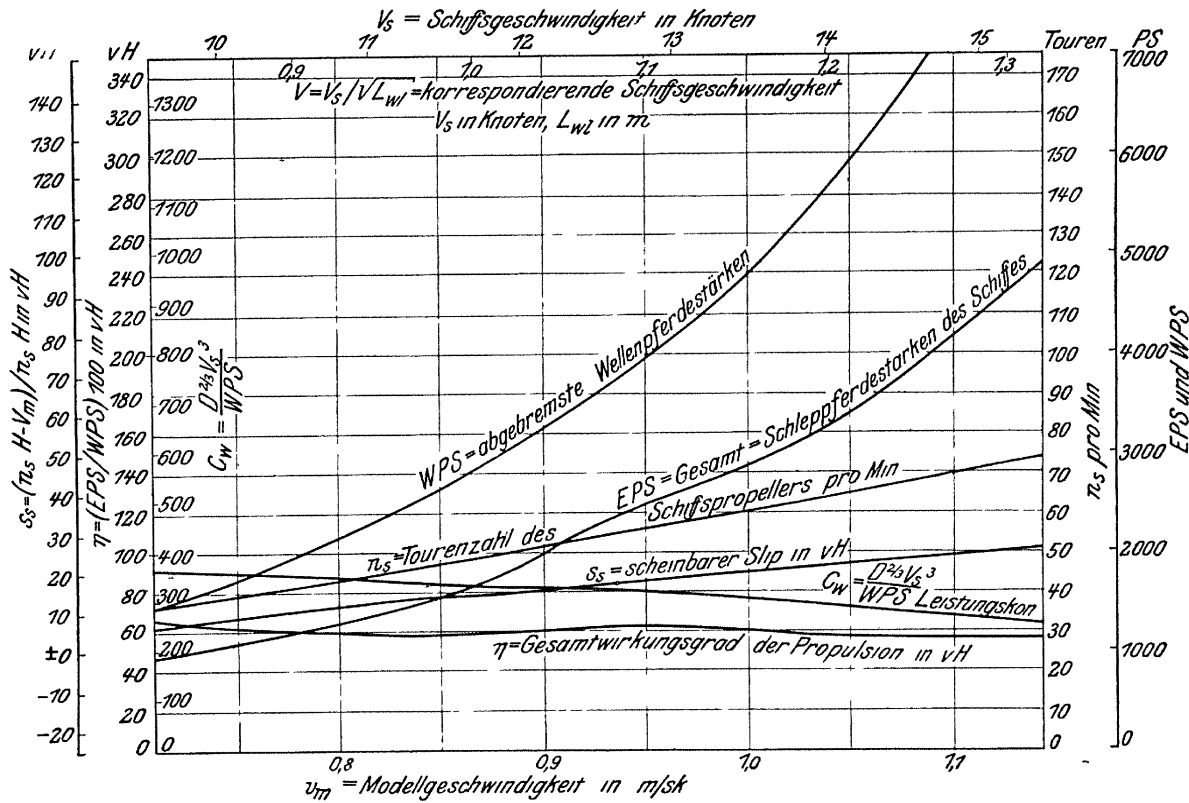 V_s = Schiffsgeschwindigkeit in Knoten
10 11 12 13 14 15
vH vH Touren PS
0,9 1,0 1,1 1,2 1,3
V=V_s/√L_wl=korrespondierende Schiffsgeschwindigkeit
V_s in Knoten, L_wl in m
140 130 120 110 100 90 80 70 60 50 40 30 20 10 ±0 -10 -20
s_s=(n_s H-V_m)/n_s H in vH
340 320 300 280 260 240 220 200 180 160 140 120 100 80 60 40 20 0
η=(EPS/WPS) 100 in vH
1300 1200 1100 1000 900 800 700 600 500 400 300 200 100 0
C_w = D^2/3 V_s^3 / WPS
WPS=abgebremste Wellenpferdestärken
EPS=Gesamt=Schleppferdestarken des Schiffes
n_s=Tourenzahl des Schiffspropellers pro Min
s_s=scheinbarer Slip in vH
C_w = D^2/3 V_s^3 / WPS Leistungskon
η=Gesamtwirkungsgrad der Propulsion in vH
170 160 150 140 130 120 110 100 90 80 70 60 50 40 30 20 10 0
n_s pro Min
7000 6000 5000 4000 3000 2000 1000 0
EPS und WPS
0,8 0,9 1,0 1,1
v_m = Modellgeschwindigkeit in m/sk